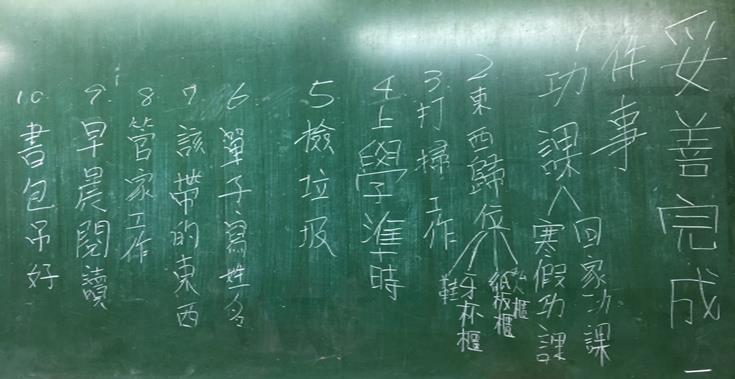 妥善完成一
件事
1 功課 回家功課
寒假功課
2 東西歸位 櫃
紙板櫃
牙杯櫃
鞋
3 打掃工作
4 上學準時
5 檢垃圾
6 單子寫姓名
7 該帶的東西
8 管家工作
9 早晨閱讀
10 書包吊好